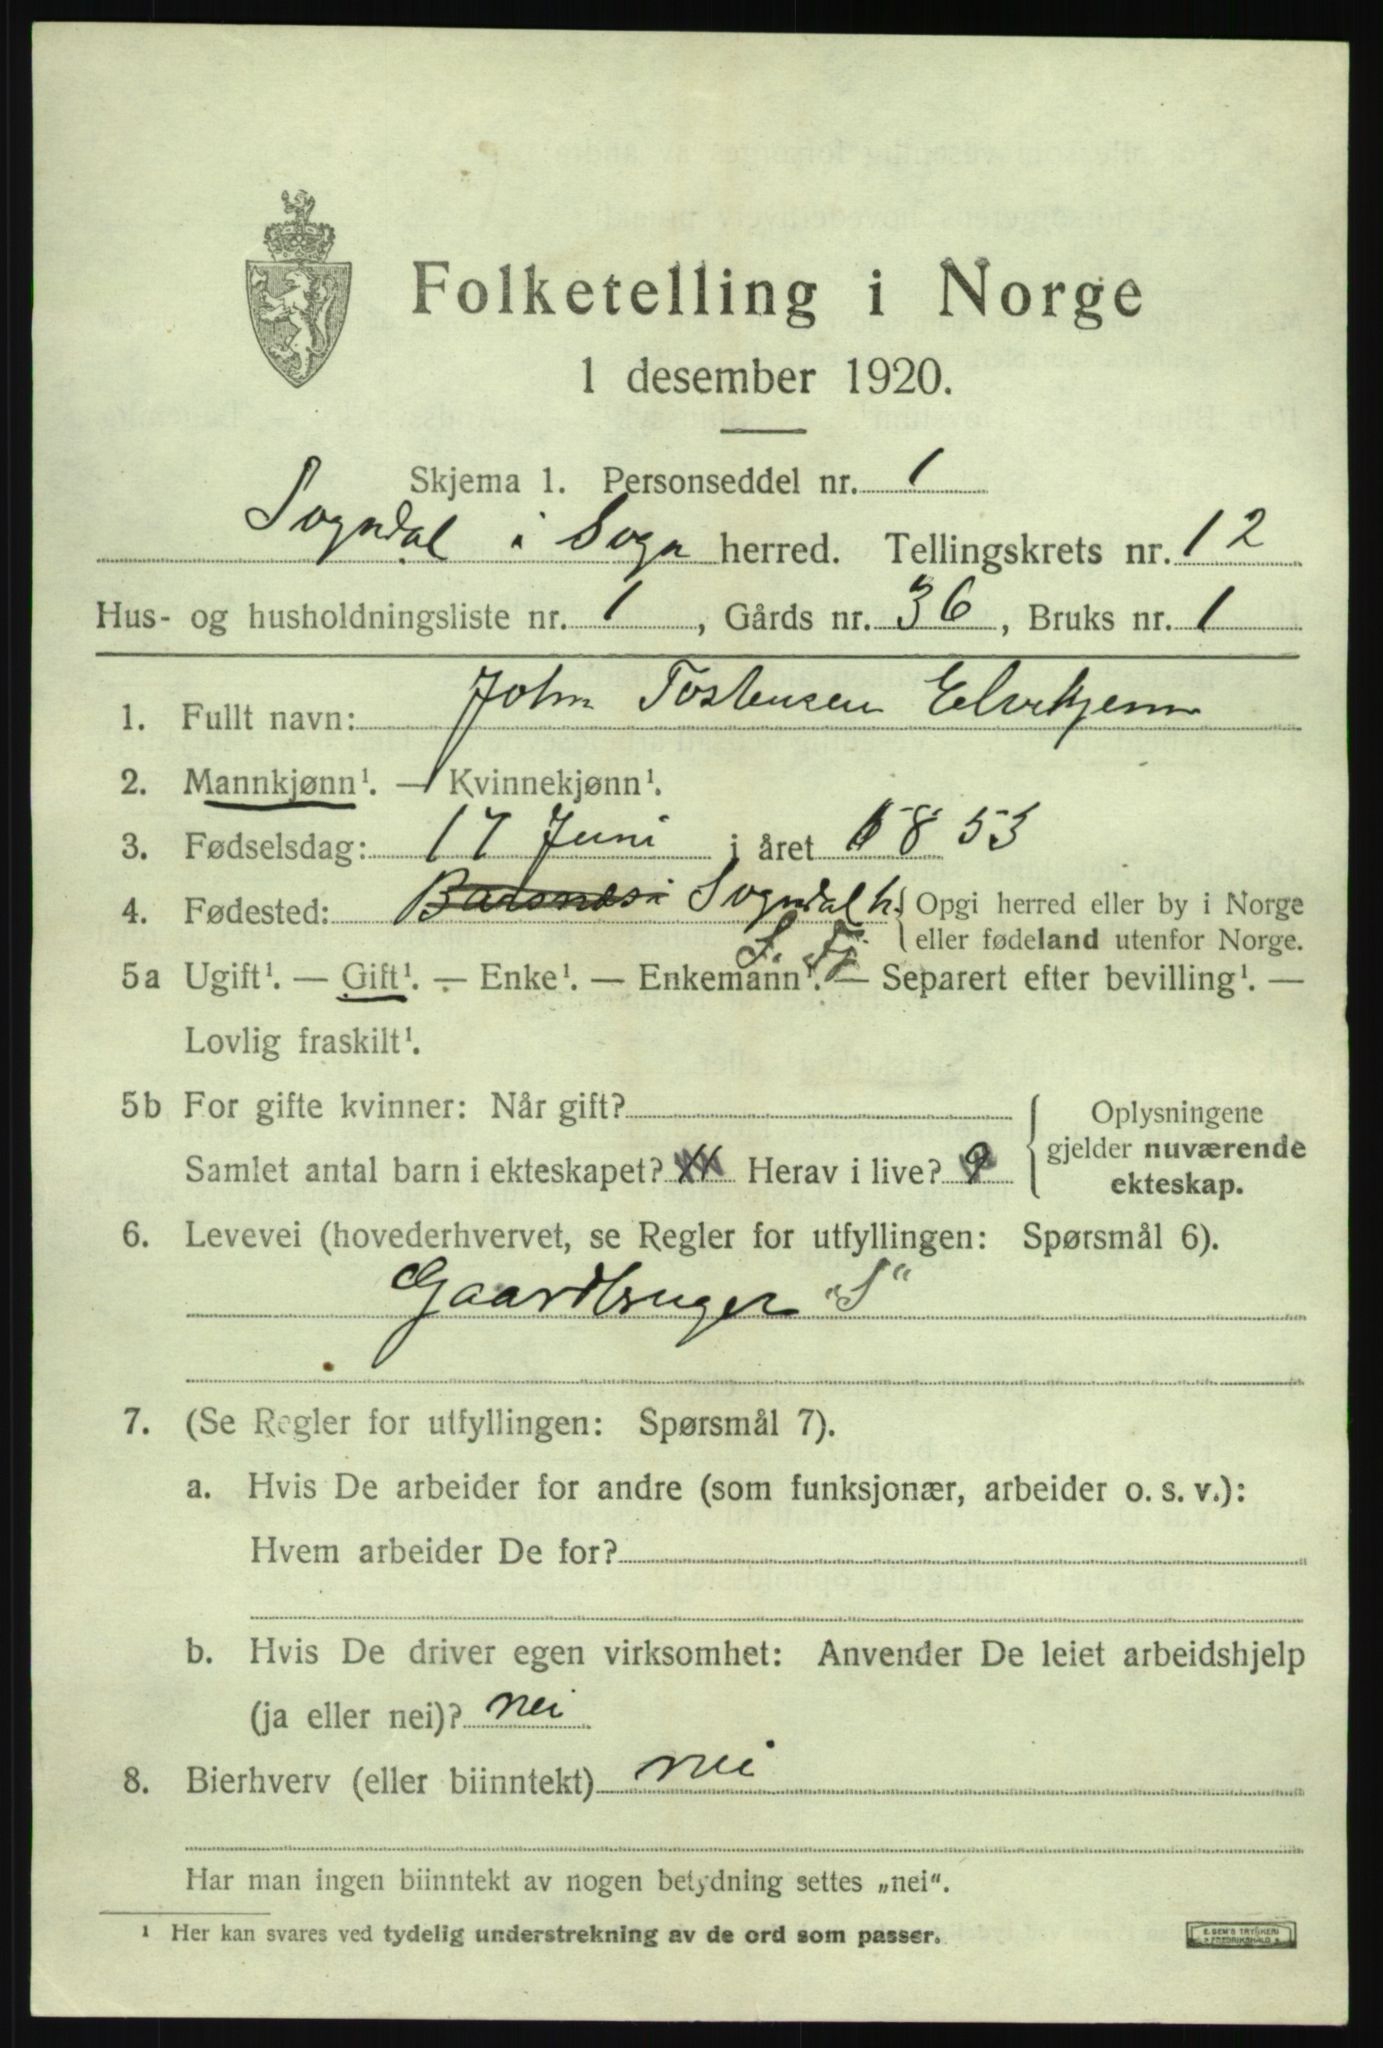 Folketelling i Norge
1 desember 1920.
Skjema 1. Personseddel nr. 1
Sogndal i Sogn herred. Tellingskrets nr. 12
Hus- og husholdningsliste nr. 1, Gårds nr. 36, Bruks nr. 1
1. Fullt navn: John Tostensen Elvekjenn
2. Mannkjønn¹. — Kvinnekjønn¹.
3. Fødselsdag: 17 Juni i året 1853
4. Fødested: Barsnæs i Sogndal h. { Opgi herred eller by i Norge
S. Fj. eller fødeland utenfor Norge.
5a Ugift¹. — Gift¹. — Enke¹. — Enkemann¹. — Separert efter bevilling¹. —
Lovlig fraskilt¹.
5b For gifte kvinner: Når gift? { Oplysningene
gjelder nuværende
Samlet antal barn i ekteskapet? 11 Herav i live? 9
ekteskap.
6. Levevei (hovederhvervet, se Regler for utfyllingen: Spørsmål 6).
Gaardbruger „S“
7. (Se Regler for utfyllingen: Spørsmål 7).
a. Hvis De arbeider for andre (som funksjonær, arbeider o. s. v.):
Hvem arbeider De for?
b. Hvis De driver egen virksomhet: Anvender De leiet arbeidshjelp
(ja eller nei)? nei
8. Bierhverv (eller biinntekt) nei
Har man ingen biinntekt av nogen betydning settes „nei“.
¹ Her kan svares ved tydelig understrekning av de ord som passer.
E. SEM'S TRYKKERI
FREDRIKSHALD